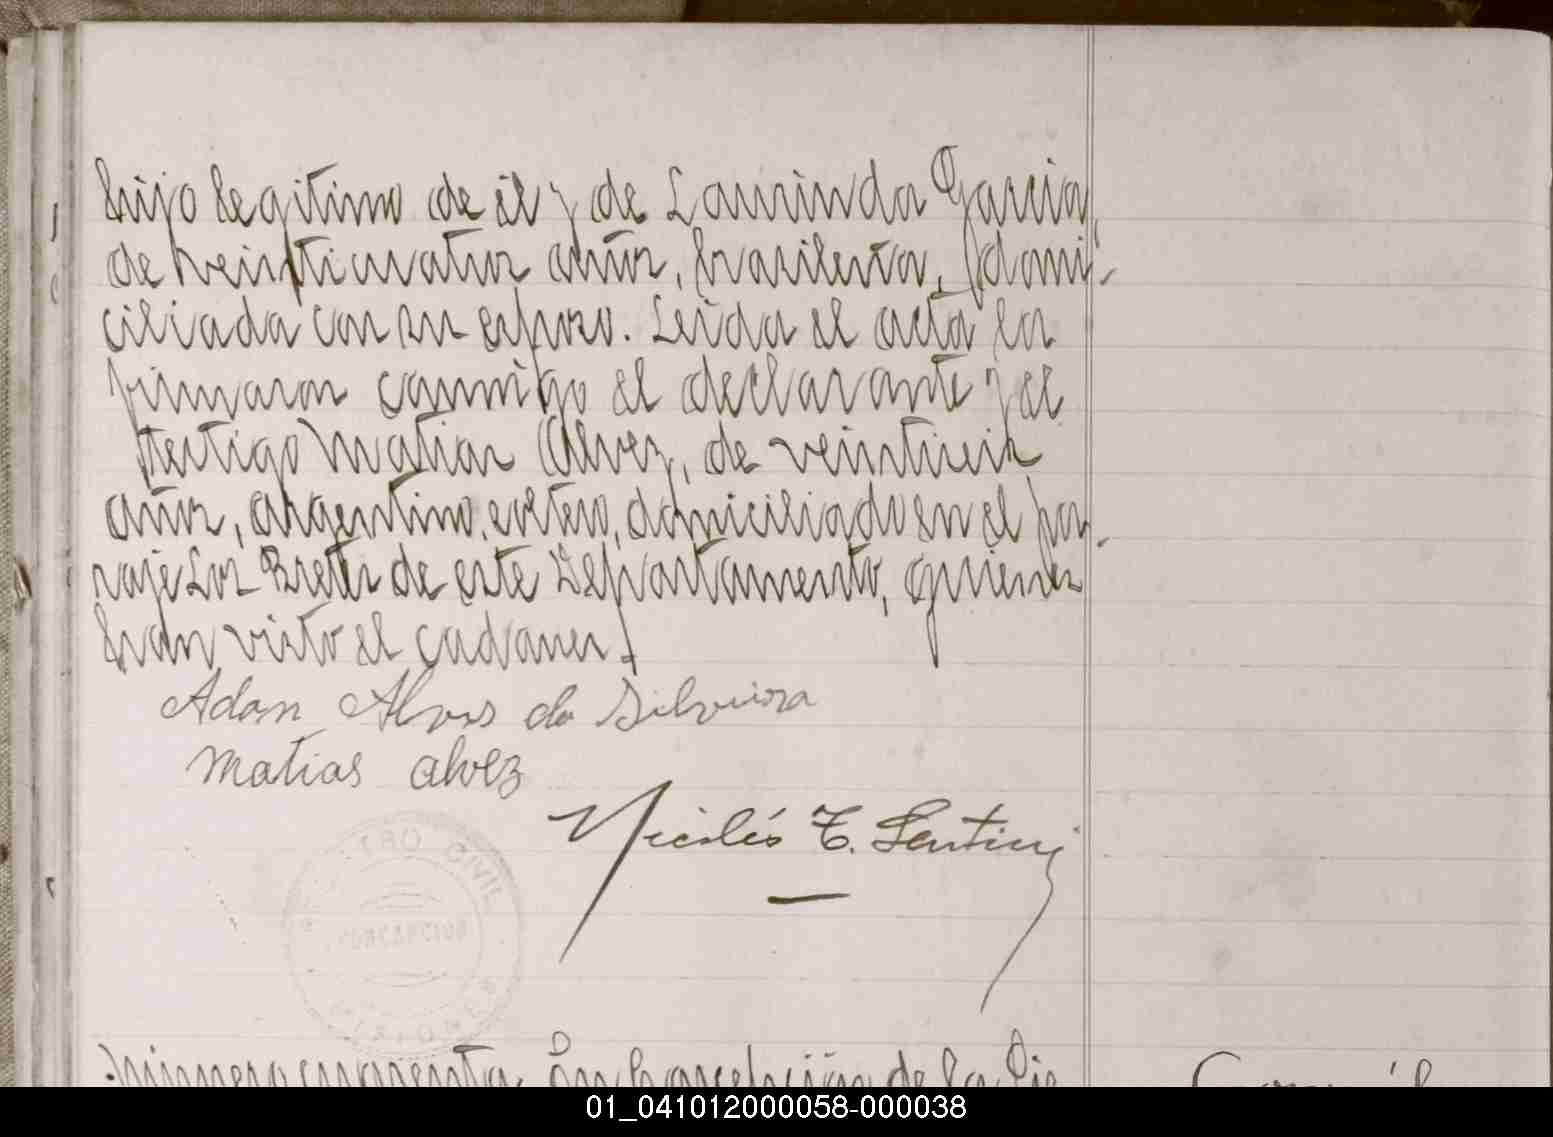 hijo legitimo de él y de Laurinda Garcia,
de veinticuatro años, brasilera, domi-
ciliada con su esposo. Leida el acta la
firmaron conmigo el declarante y el
testigo Matias Alvez, de veintiseis
años, argentino, soltero, domiciliado en el pa-
raje Los Bretes de este Departamento, quienes
han visto el cadaver.
Adan Alves da Silveira
Matias alvez
Nicolás T.
REGISTRO CIVIL
CONCEPCION
MISIONES
Número cuarenta. En Concepción de la Sie
01_041012000058-000038